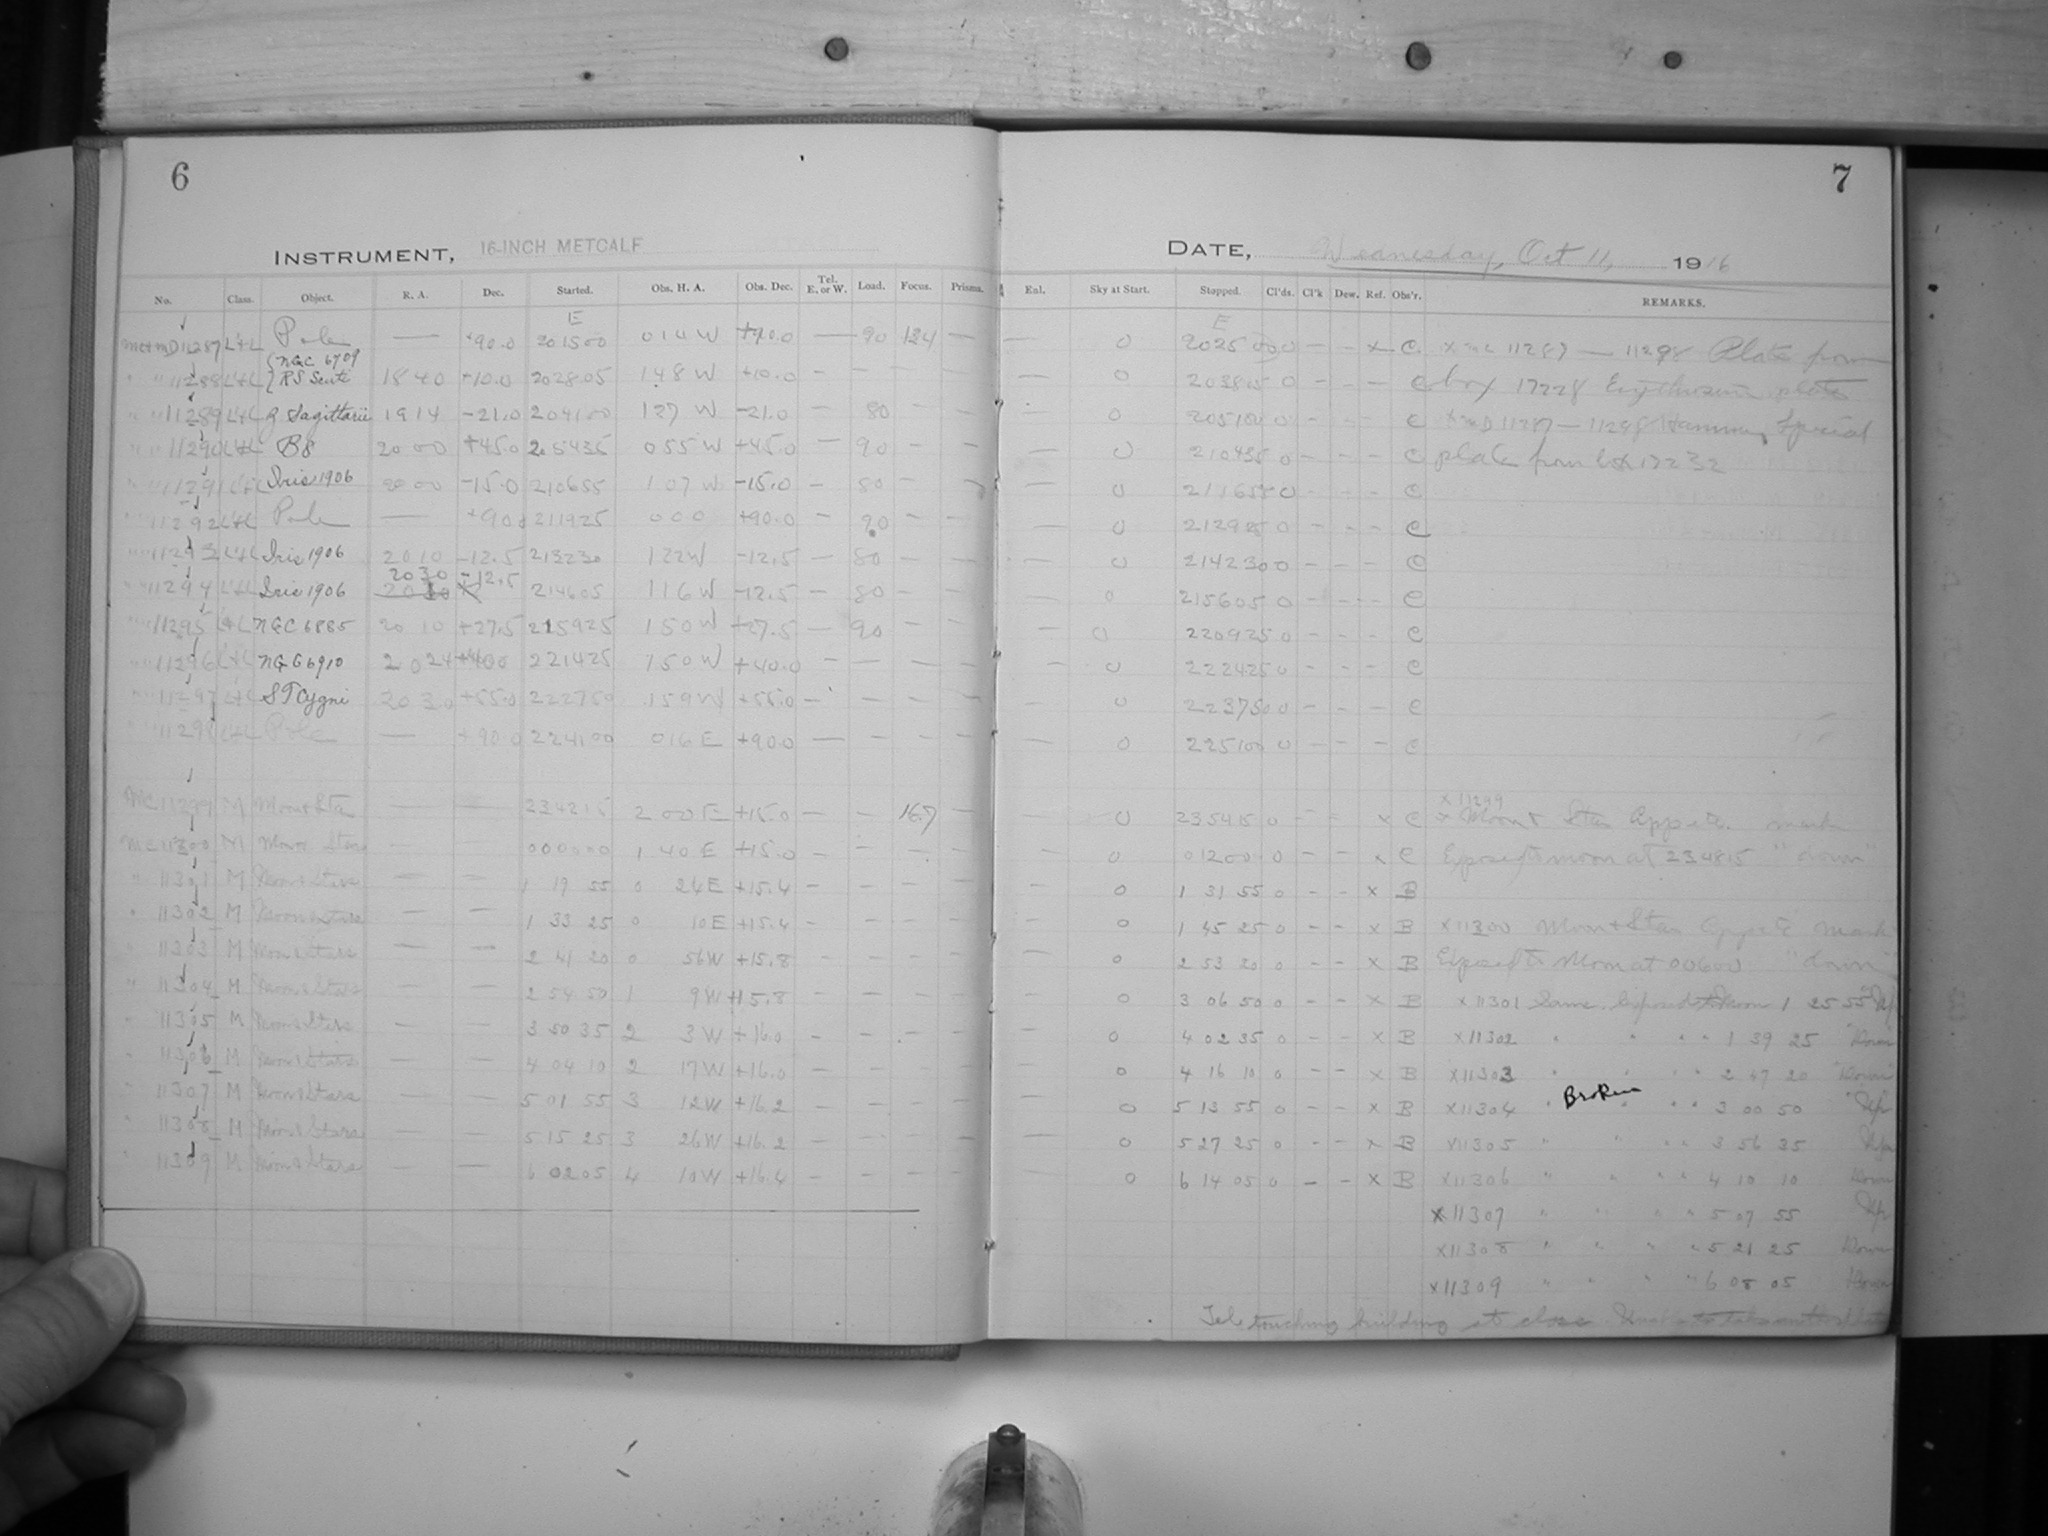 6
INSTRUMENT, 16-INCH METCALF
No. Class. Object. R. A. Dec. Started. Obs. H. A. Obs. Dec. Tel. E. or W. Load. Focus. Prisms.
E
MC+MD 11287 L+L Pole — +90.0 201500 0 14 W +90.0 — 90 124 —
" " 11288 L+L { NGC 6709
{ RS Scuti 18 40 +10.0 202805 1 48 W +10.0 — — — —
" " 11289 L+L R Sagittarii 19 14 -21.0 204100 1 27 W -21.0 — 80 — —
" " 11290 L+L B8 20 00 +45.0 205435 0 55 W +45.0 — 90 — —
" " 11291 L+L Iris 1906 20 00 -15.0 210655 1 07 W -15.0 — 80 —
" " 11292 L+L Pole — +90.0 211925 0 00 +90.0 — 90 — —
" " 11293 L+L Iris 1906 20 10 -12.5 213230 1 22 W -12.5 — 80 — —
20 30 -12.5
" " 11294 L+L Iris 1906 214605 1 16 W -12.5 — 80 — —
" " 11295 L+L NGC 6885 20 10 +27.5 215925 1 50 W +27.5 — 90 — —
" " 11296 L+L NGC 6910 20 24 +40.0 221425 1 50 W +40.0 — — — —
" " 11297 L+L ST Cygni 20 30 +55.0 222750 1 59 W +55.0 — — — —
" " 11298 L+L Pole — +90.0 224100 0 16 E +90.0 — — — —
MC 11299 M Moon & Star — — 234215 2 00 E +15.0 — — 16.7 —
MC 11300 M Moon & Stars — — 000000 1 40 E +15.0 — — — —
" 11301 M Moon & Stars — — 1 19 55 0 24 E +15.4 — — — —
" 11302 M Moon & Stars — — 1 33 25 0 10 E +15.4 — — — —
" 11303 M Moon & Stars — — 2 41 20 0 56 W +15.8 — — — —
" 11304 M Moon & Stars — — 2 54 50 1 9 W +15.8 — — — —
" 11305 M Moon & Stars — — 3 50 35 2 3 W +16.0 — — — —
" 11306 M Moon & Stars — — 4 04 10 2 17 W +16.0 — — — —
" 11307 M Moon & Stars — — 5 01 55 3 12 W +16.2 — — — —
" 11308 M Moon & Stars — — 5 15 25 3 26 W +16.2 — — — —
" 11309 M Moon & Stars — — 6 02 05 4 10 W +16.4 — — — —
7
DATE, Wednesday, Oct 11, 1916
Enl. Sky at Start. Stopped. Cl'ds. Cl'k Dew. Ref. Obs'r. REMARKS.
E
— 0 202500 0 — — x C. x MC 11287 — 11298 Plate from
— 0 203815 0 — — — C box 17228 plate
— 0 205100 0 — — — C x MD 11287 — 11298 Hammer Special
— 0 210435 0 — — — C plate from box 17232
— 0 211655 0 — — — C
— 0 212925 0 — — — C
— 0 214230 0 — — — C
— 0 215605 0 — — — C
— 0 220925 0 — — — C
— 0 222425 0 — — — C
— 0 223750 0 — — — C
— 0 225100 0 — — — C
x 11299
— 0 235415 0 — — x C x Moon & Star mark
— 0 01200 0 — — x C Exposed to moon at 234815 "down"
— 0 1 31 55 0 — — x B
— 0 1 45 25 0 — — x B x11300 Moon & Star mark
— 0 2 53 20 0 — — x B Exposed to Moon at 00600 "down"
— 0 3 06 50 0 — — x B x 11301 Same. Exposed to Moon 1 25 55 "Up
— 0 4 02 35 0 — — x B x11302 " " " " 1 39 25 Down
— 0 4 16 10 0 — — x B x11303 " " " " 2 47 20 Down
— 0 5 13 55 0 — — x B x11304 " Broken " " 3 00 50 Up
— 0 5 27 25 0 — — x B x11305 " " " " 3 56 35 Up
0 6 14 05 0 — — x B x11306 " " " " 4 10 10 Down
x11307 " " " " 5 07 55 Up
x11308 " " " " 5 21 25 Down
x11309 " " " " 6 08 05 Down
Tel. touching building at close.